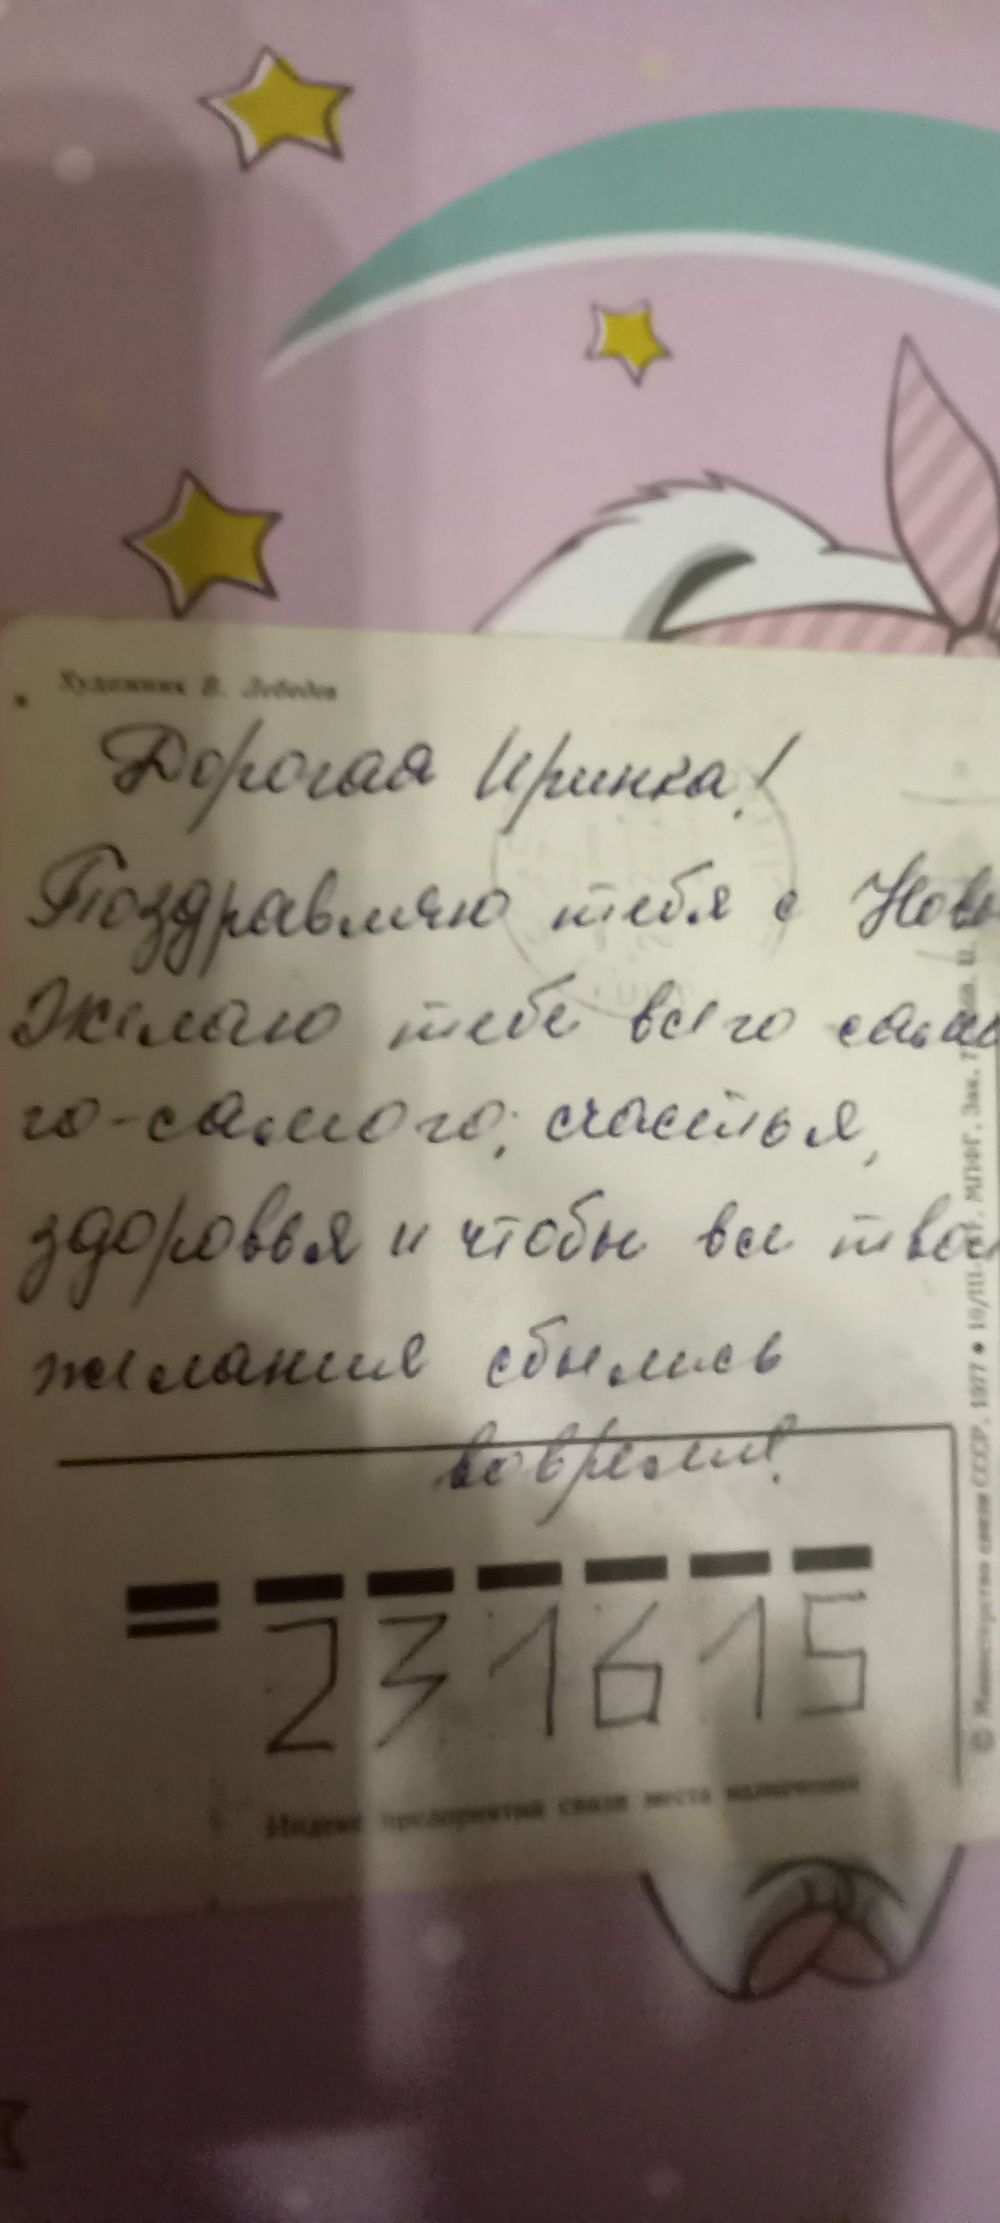 Художник В. Лебедев
Дорогая Иринка!
Поздравляю тебя с Новы
Желаю тебе всего само
го-самого; счастья,
здоровья и чтобы все твои
желания сбылись
вовремя!
231615
Индекс предприятия связи места назначения
© Министерство связи СССР, 1977 • 10/III-77. МПФГ. Зак.